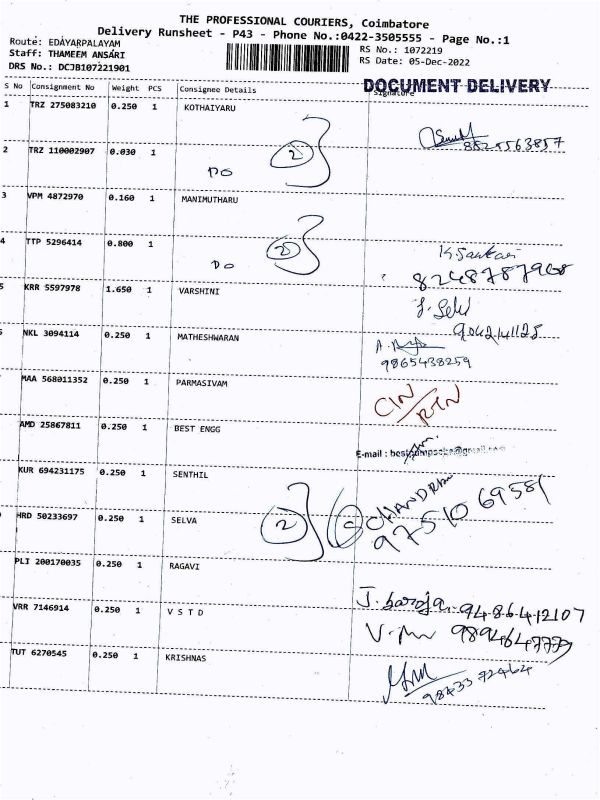 THE PROFESSIONAL COURIERS, Coimbatore
Delivery Runsheet - P43 - Phone No.:0422-3505555 - Page No.:1
Route: EDAYARPALAYAM
Staff: THAMEEM ANSARI
DRS No.: DCJB107221901
RS No.: 1072219
RS Date: 05-Dec-2022
DOCUMENT DELIVERY
S No Consignment No Weight PCS Consignee Details Signature
1 TRZ 275083210 0.250 1 KOTHAIYARU
2 8825563857
2 TRZ 110002907 0.030 1
DO
3 VPM 4872970 0.160 1 MANIMUTHARU
4 TTP 5296414 0.800 1
2 DO K. Sankari
8248787968
5 KRR 5597978 1.650 1 VARSHINI
9042141125
NKL 3094114 0.250 1 MATHESHWARAN
9865438259
MAA 568011352 0.250 1 PARMASIVAM
CIN/RTN
AMD 25867811 0.250 1 BEST ENGG
E-mail :
KUR 694231175 0.250 1 SENTHIL
2 CHANDRA
HRD 50233697 0.250 1 SELVA
97510 69581
PLI 200170035 0.250 1 RAGAVI
J. Saroja. 9486412107
VRR 7146914 0.250 1 V S T D
9894647779
TUT 6270545 0.250 1 KRISHNAS
98433 72464